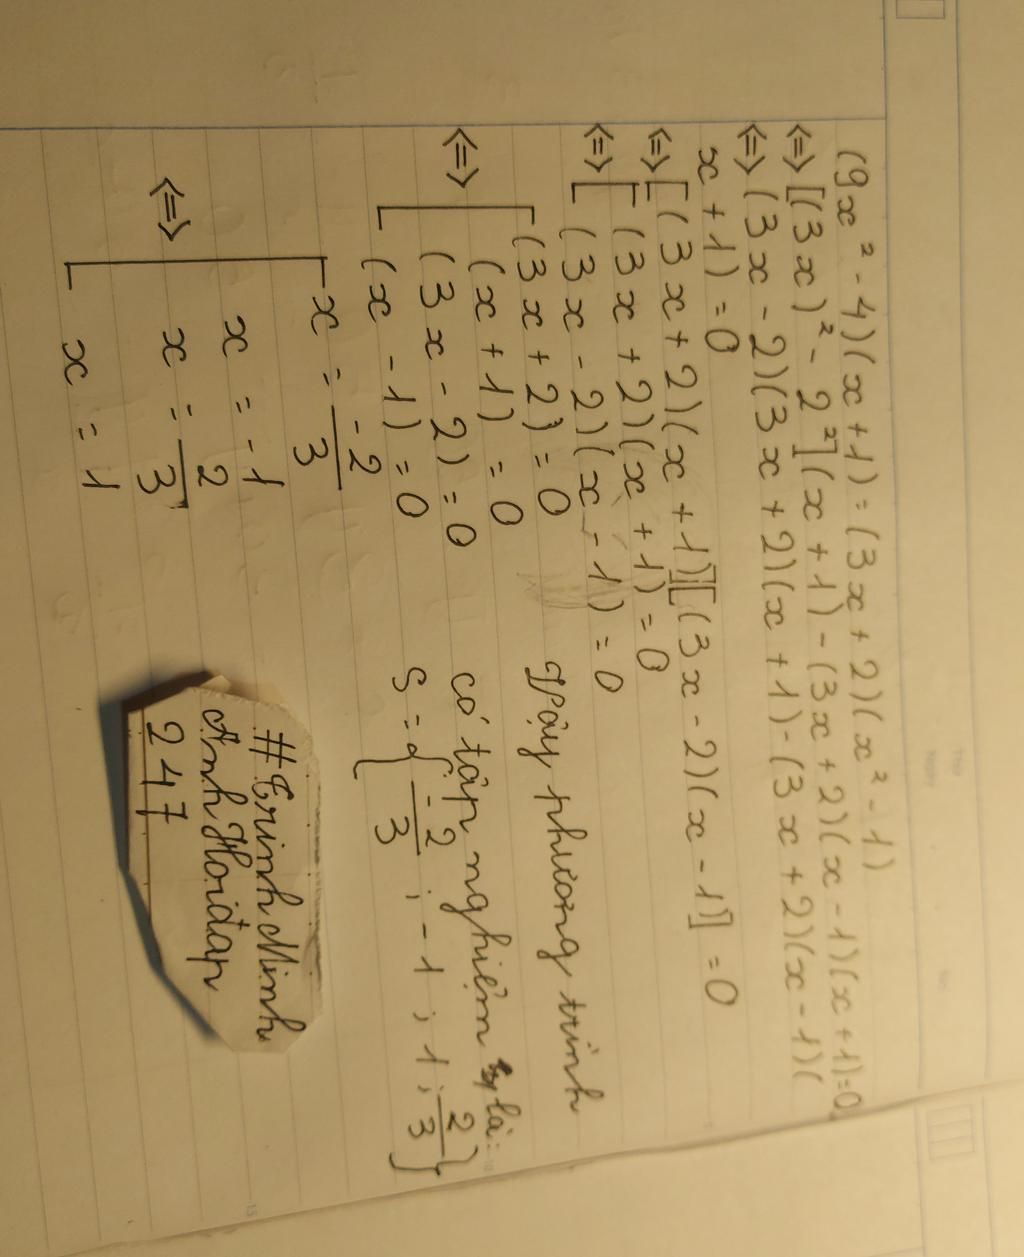 (9x² - 4)(x + 1) = (3x + 2)(x² - 1)
<=> [(3x)² - 2²](x + 1) - (3x + 2)(x - 1)(x + 1) = 0
<=> (3x - 2)(3x + 2)(x + 1) - (3x + 2)(x - 1)(
x + 1) = 0
<=> [(3x + 2)(x + 1)][(3x - 2)(x - 1)] = 0
<=> [ (3x + 2)(x + 1) = 0
(3x - 2)(x - 1) = 0
<=> [ (3x + 2) = 0
(x + 1) = 0
(3x - 2) = 0
(x - 1) = 0
<=> [ x = -2/3
x = -1
x = 2/3
x = 1
Vậy phương trình
có tập nghiệm là:
S = { -2/3 ; -1 ; 1 ; 2/3 }
#Trinh Minh
Anh Hoiđap
247